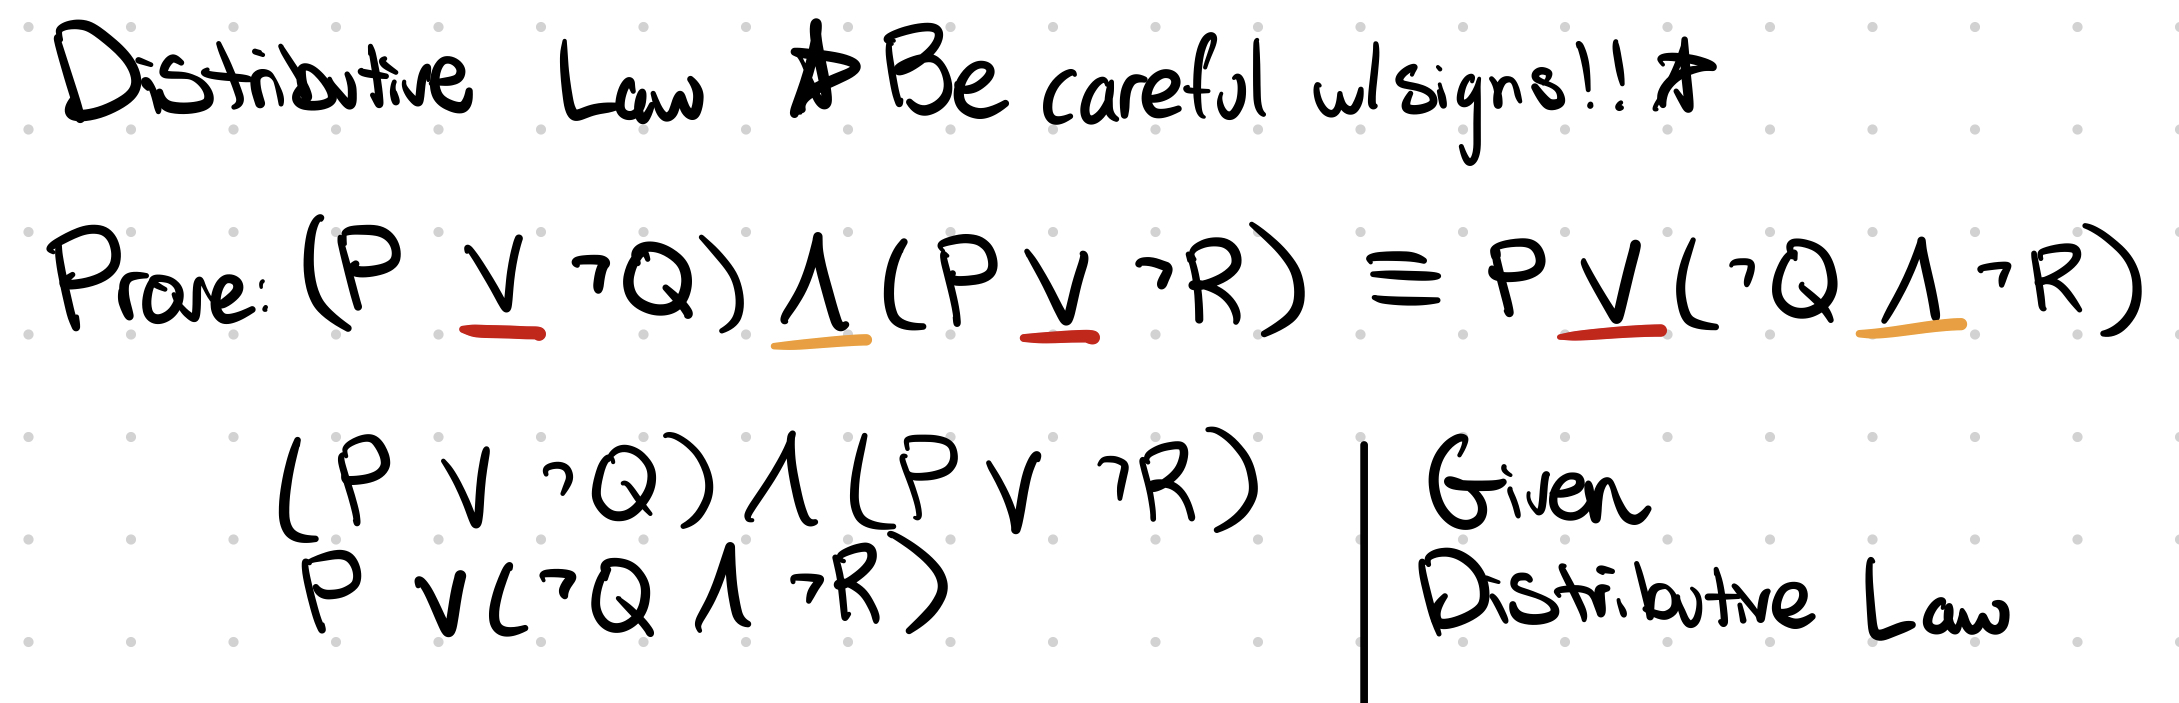 Distributive Law ☆ Be careful w/ signs!! ☆
Prove: (P ∨ ¬Q) ∧ (P ∨ ¬R) ≡ P ∨ (¬Q ∧ ¬R)
(P ∨ ¬Q) ∧ (P ∨ ¬R) | Given
P ∨ (¬Q ∧ ¬R) | Distributive Law